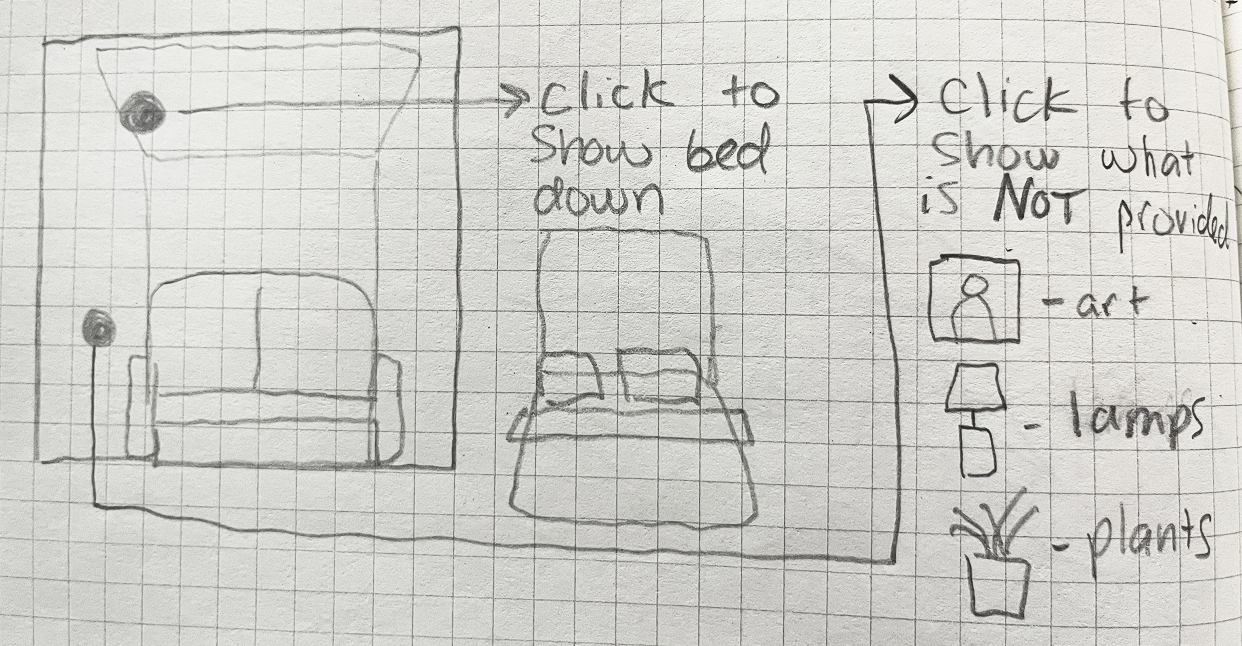 Click to
Show bed
down
Click to
Show what
is NOT provided
- art
- lamps
- plants